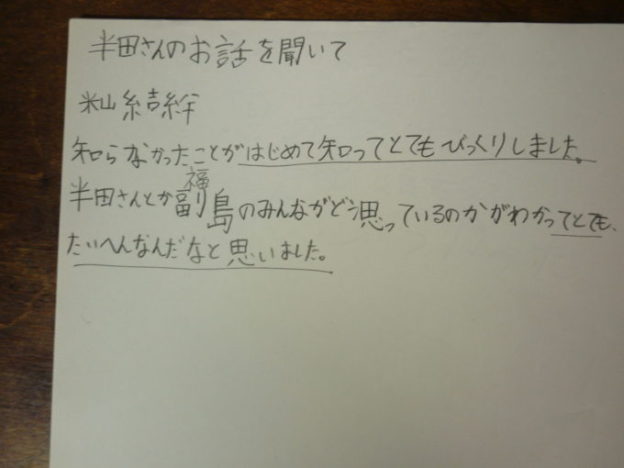 半田さんのお話を聞いて
米山結絆
知らなかったことがはじめて知ってとてもびっくりしました。
福
半田さんとか副島のみんながどう思っているのかがわかってとても、
たいへんなんだなと思いました。